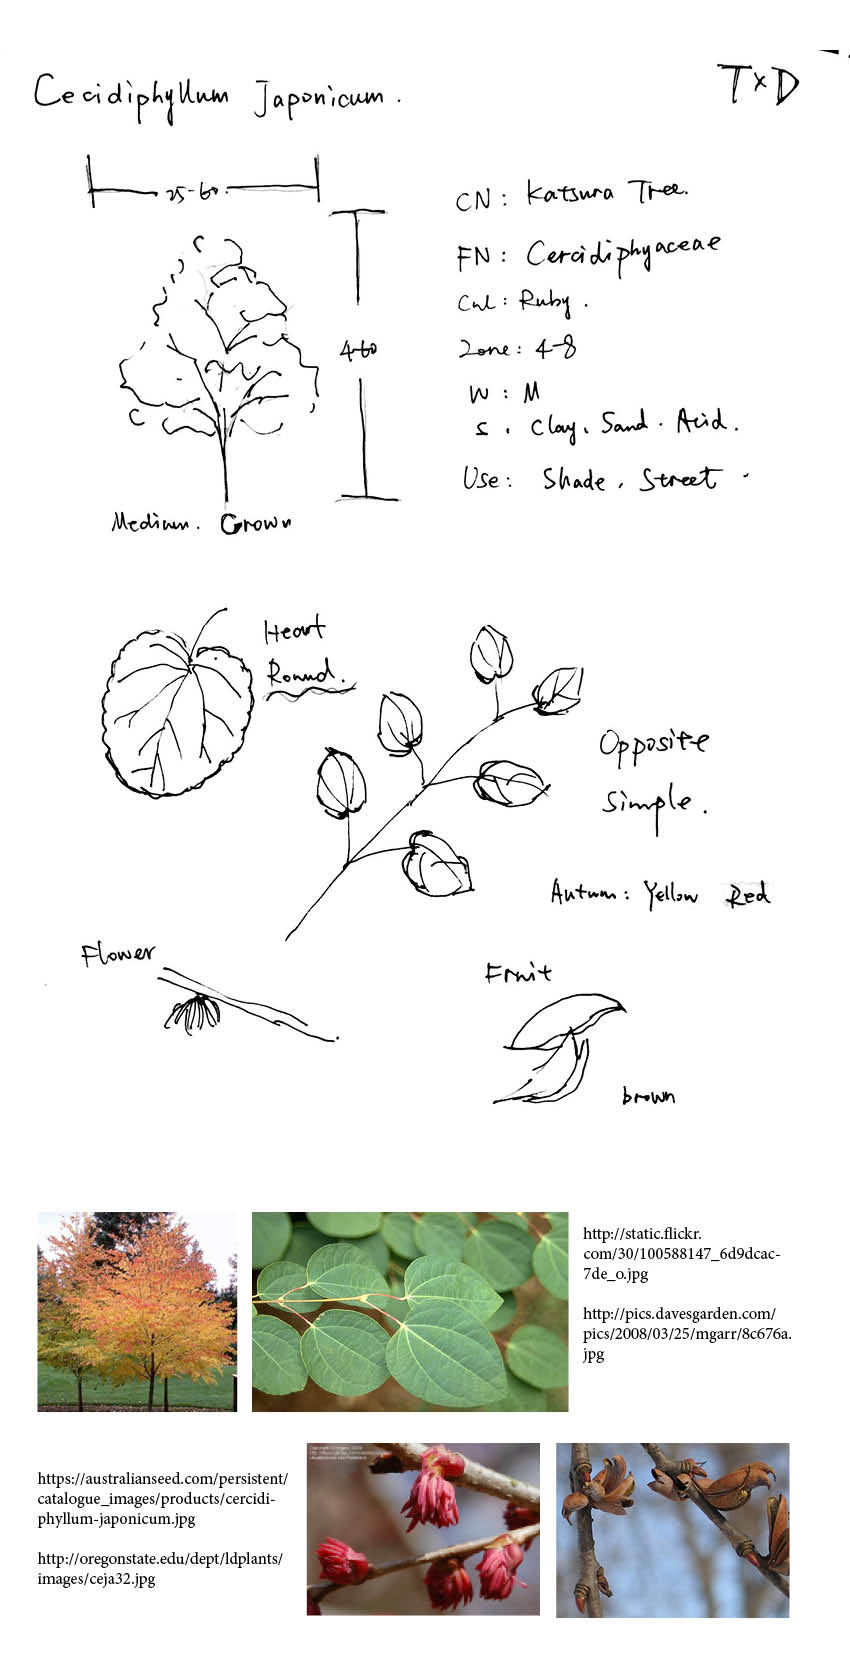 Cecidiphyllum Japonicum.
TxD
25-60
CN: Katsura Tree.
FN: Cercidiphyaceae
Cul: Ruby.
4-60
Zone: 4-8
W: M
S. Clay, Sand. Acid.
Use: Shade, Street.
Medium. Grown
Heart
Round.
Opposite
Simple.
Autum: Yellow Red
Flower
Fruit
brown
http://static.flickr.
com/30/100588147_6d9dcac-
7de_o.jpg
http://pics.davesgarden.com/
pics/2008/03/25/mgarr/8c676a.
jpg
https://australianseed.com/persistent/
catalogue_images/products/cercidi-
phyllum-japonicum.jpg
http://oregonstate.edu/dept/ldplants/
images/ceja32.jpg